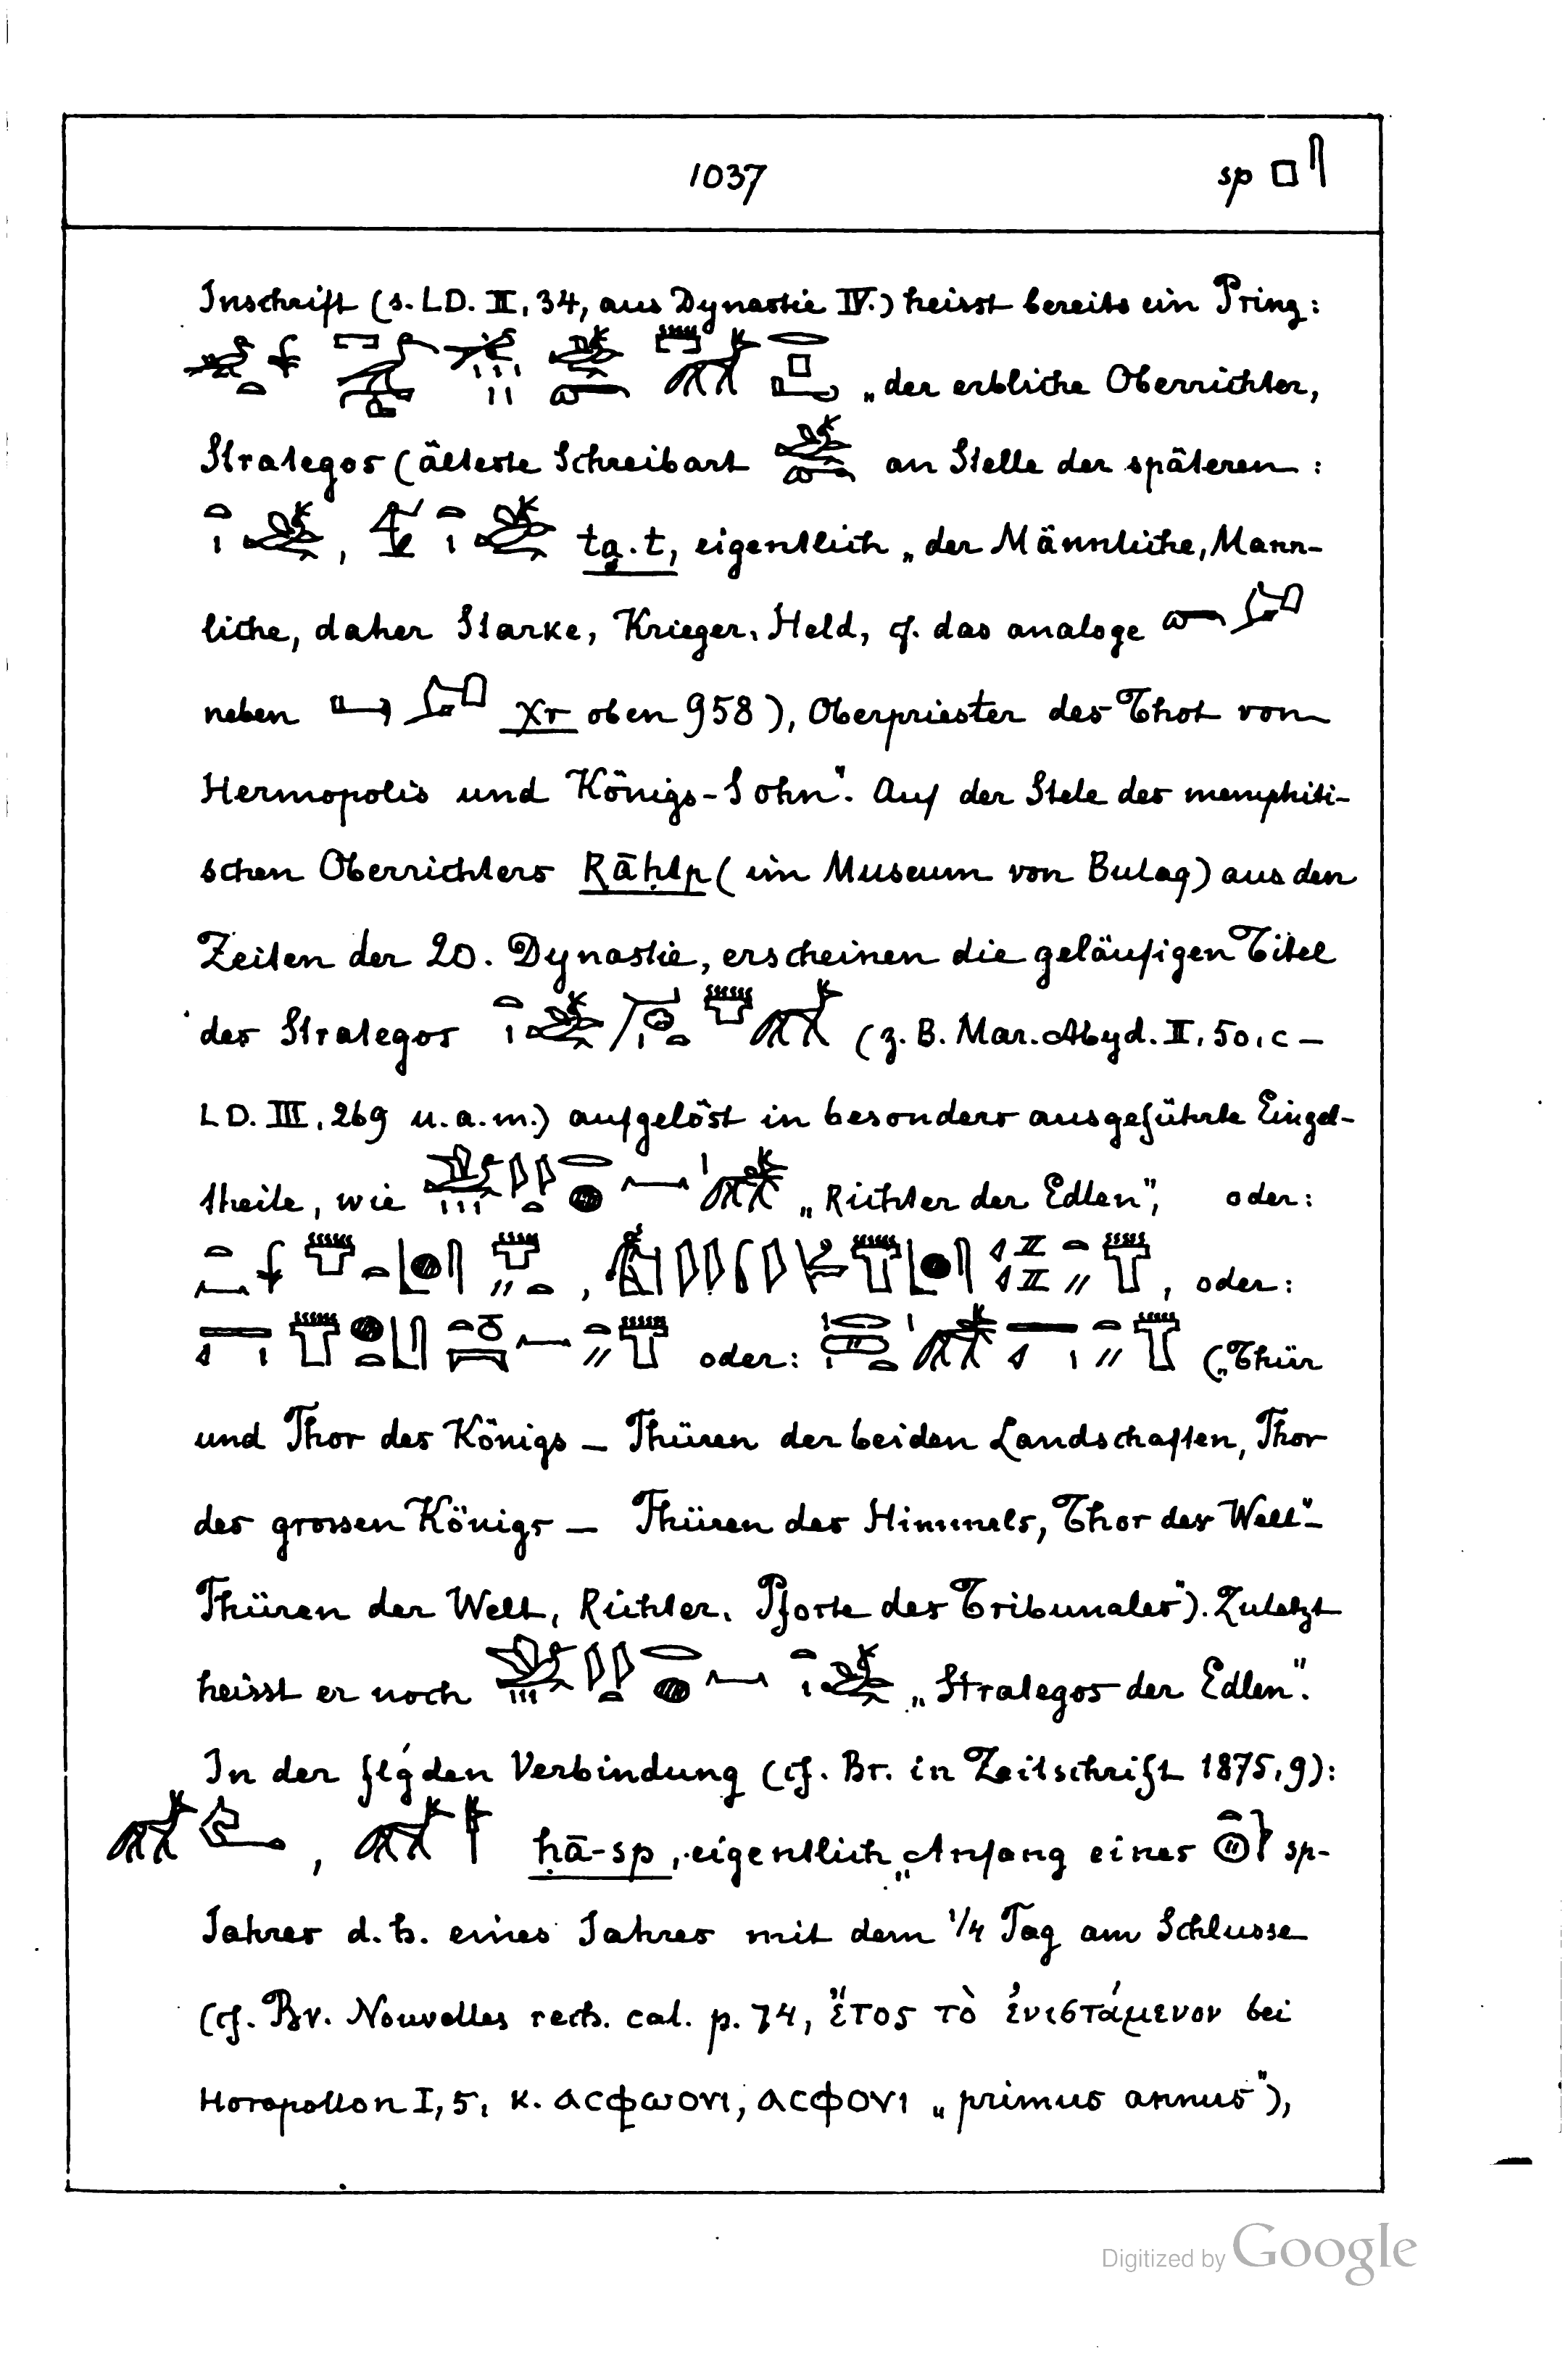 1037 sp
Inschrift (s. LD. II, 34, aus Dynastie IV.) heisst bereits ein Prinz:
„der erbliche Oberrichter,
Strategos (älteste Schreibart an Stelle der späteren :
, ta.t, eigentlich „der Männliche, Mann-
liche, daher Starke, Krieger, Held, cf. das analoge
neben χr oben 958), Oberpriester des Thot von
Hermopolis und Königs-Sohn". Auf der Stele des memphiti-
schen Oberrichters Rāḥtp (im Museum von Bulaq) aus den
Zeiten der 20. Dynastie, erscheinen die geläufigen Titel
des Strategos (z. B. Mar. Abyd. II, 50, c —
LD. III, 269 u. a. m.) aufgelöst in besonders ausgeführte Einzel-
theile, wie „Richter der Edlen", oder:
, , oder:
oder: („Thür
und Thor des Königs — Thüren der beiden Landschaften, Thor
des grossen Königs — Thüren des Himmels, Thor der Welt" —
Thüren der Welt, Richter, Pforte des Tribunales"). Zuletzt
heisst er noch „Strategos der Edlen".
In der flgden Verbindung (cf. Br. in Zeitschrift 1875, 9):
, ḥā-sp, eigentlich „Anfang eines sp-
Jahres d. h. eines Jahres mit dem 1/4 Tag am Schlusse
(cf. Br. Nouvelles rech. cal. p. 74, ἔτος τὸ ἐνιστάμενον bei
Horapollon I, 5, κ. ⲁⲥⲫⲱⲟⲩⲓ, ⲁⲥⲫⲟⲩⲓ „primus annus"),
Digitized by Google